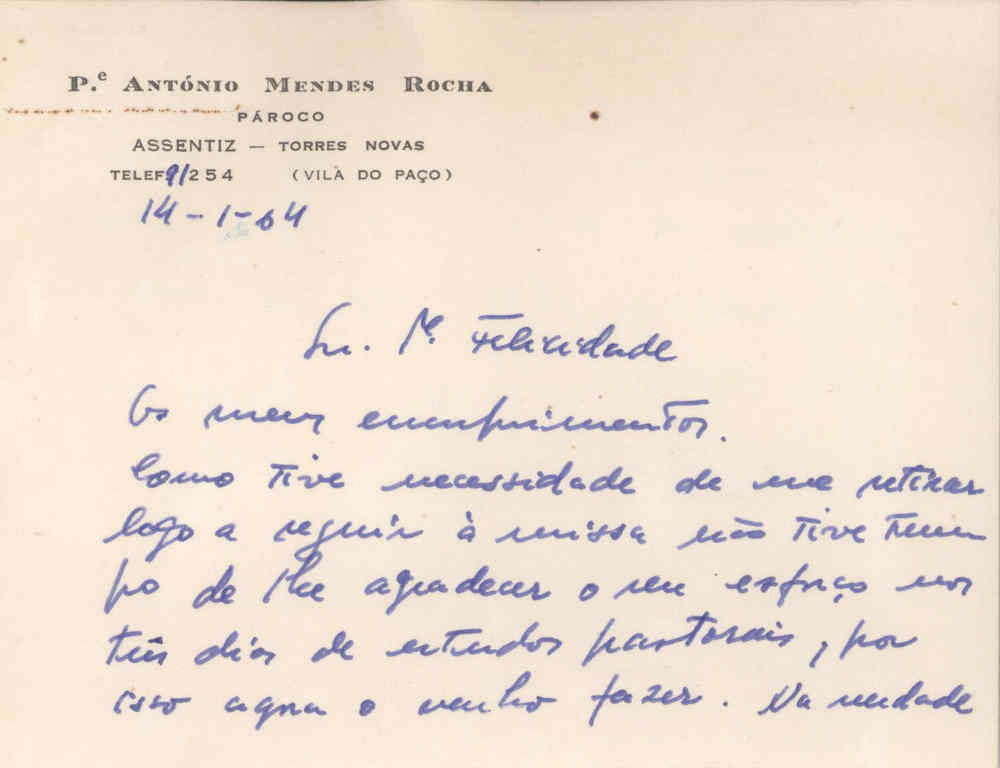 P.e ANTÓNIO MENDES ROCHA
PÁROCO
ASSENTIZ — TORRES NOVAS
TELEF 91254 (VILA DO PAÇO)
14-1-64
Sr. Mª. Felicidade
Os meus cumprimentos.
Como tive necessidade de me retirar
logo a seguir à missa não tive tem
po de lhe agradecer o seu esforço nos
três dias de estudos pastorais, por
isso agora o venho fazer. Na verdade